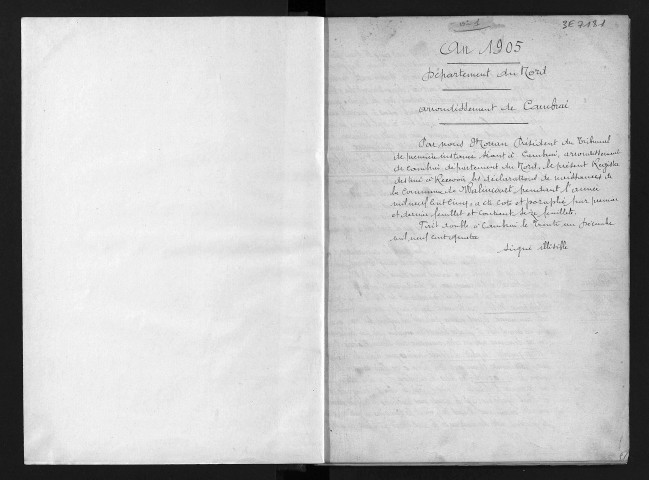 3E7181
An 1905
Département du Nord
arrondissement de Cambrai
Par nous Président du Tribunal
de première instance séant à Cambrai, arrondissement
de Cambrai département du Nord, le présent Registre
destiné à Recevoir les déclarations de naissances de
la Commune de Walincourt pendant l'année
mil neuf cent cinq, a été coté et paraphé par premier
et dernier feuillet et contient seize feuillets.
Fait double à Cambrai le Trente un décembre
mil neuf cent quatre
Signé illisible